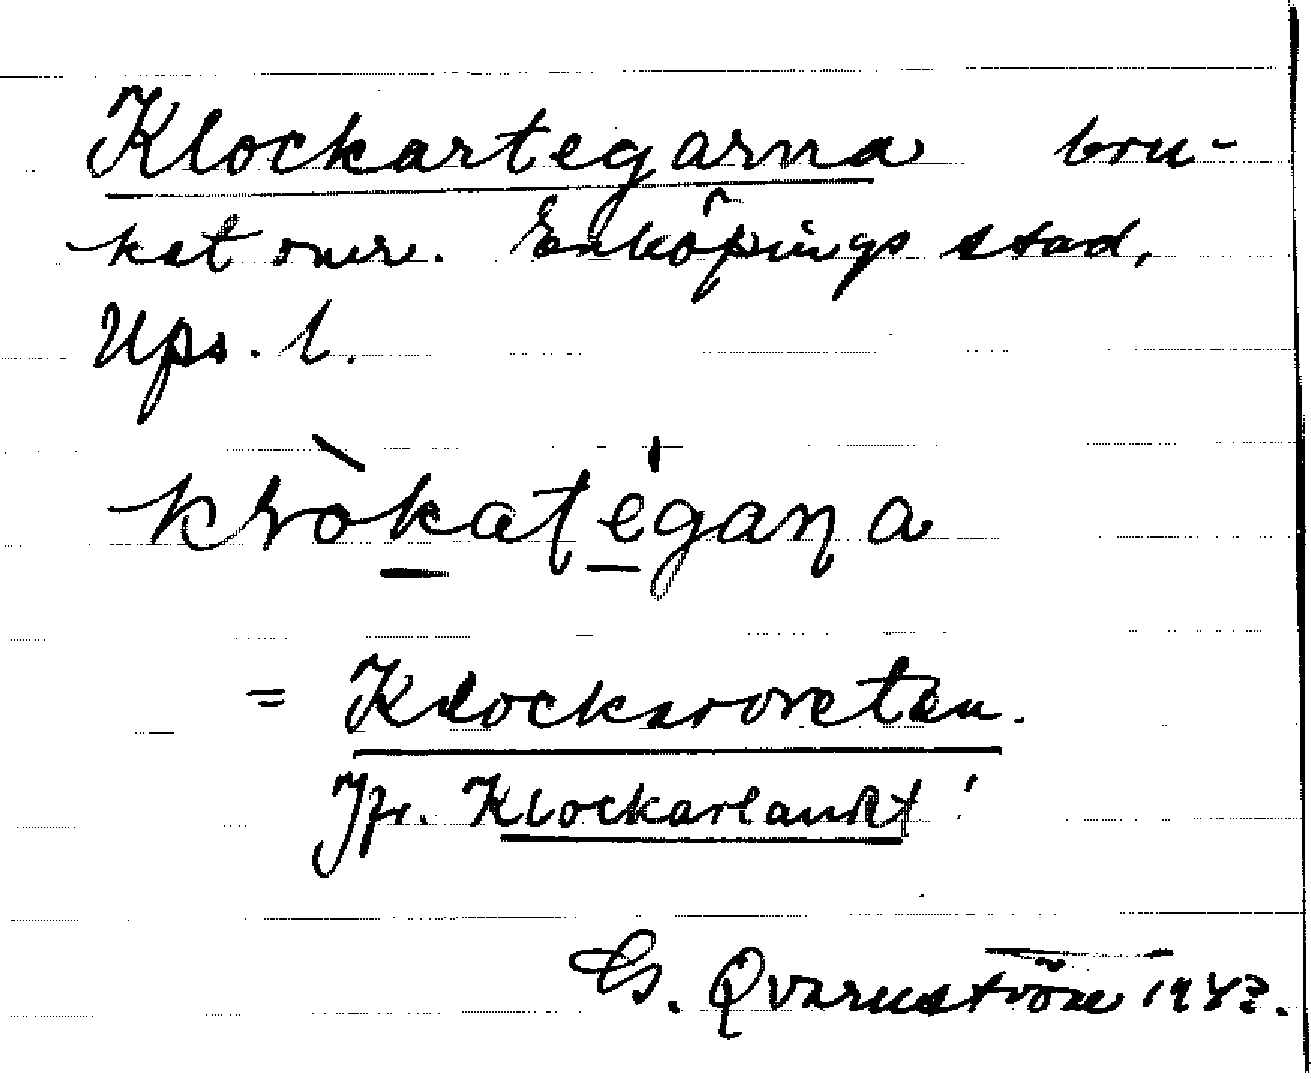 Klockartegarna bru-
kat omr. Enköpings stad,
Ups. l.
kròkatega̩na
= Klockaroreten.
Jfr. Klockarlandet!
G. Qvarnström 1943.